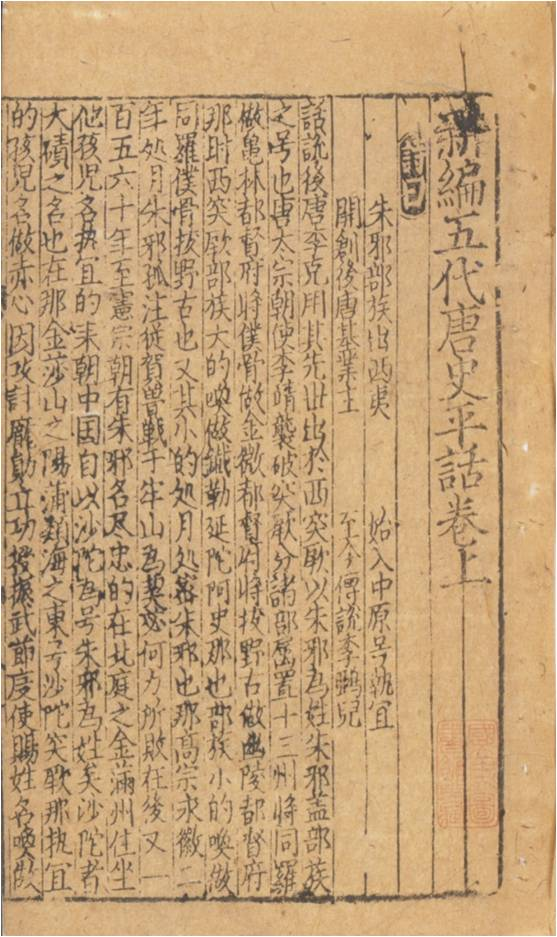 新編五代唐史平話卷上
詩曰
朱邪部族出西夷 始入中原号執宜
開創後唐基業主 至今傳說李鵶兒
話說後唐李克用其先世出於西突厥以朱邪為姓朱邪盖部族
之号也唐太宗朝使李靖襲破突厥分諸部置十三州將同羅
做亀林都督府將僕骨做金微都督府將拔野古做幽陵都督府
那時西突厥部族大的喚做鐵勒延陀阿史那也部族小的喚做
同羅僕骨拔野古也又其小的処月処密朱邪也那高宗永徽二
年処月朱邪孤注従賀魯戰于牢山為契苾何力所敗在後又一
百五六十年至憲宗朝有朱邪名尽忠的在北庭之金滿州住坐
他孩兒名執宜的来朝中国自以沙陀為号朱邪為姓矣沙陀者
大磧之名也在那金莎山之陽蒲類海之東号沙陀突厥那執宜
的孩兒名做赤心因攻討龐勛立功授振武節度使賜姓名喚做